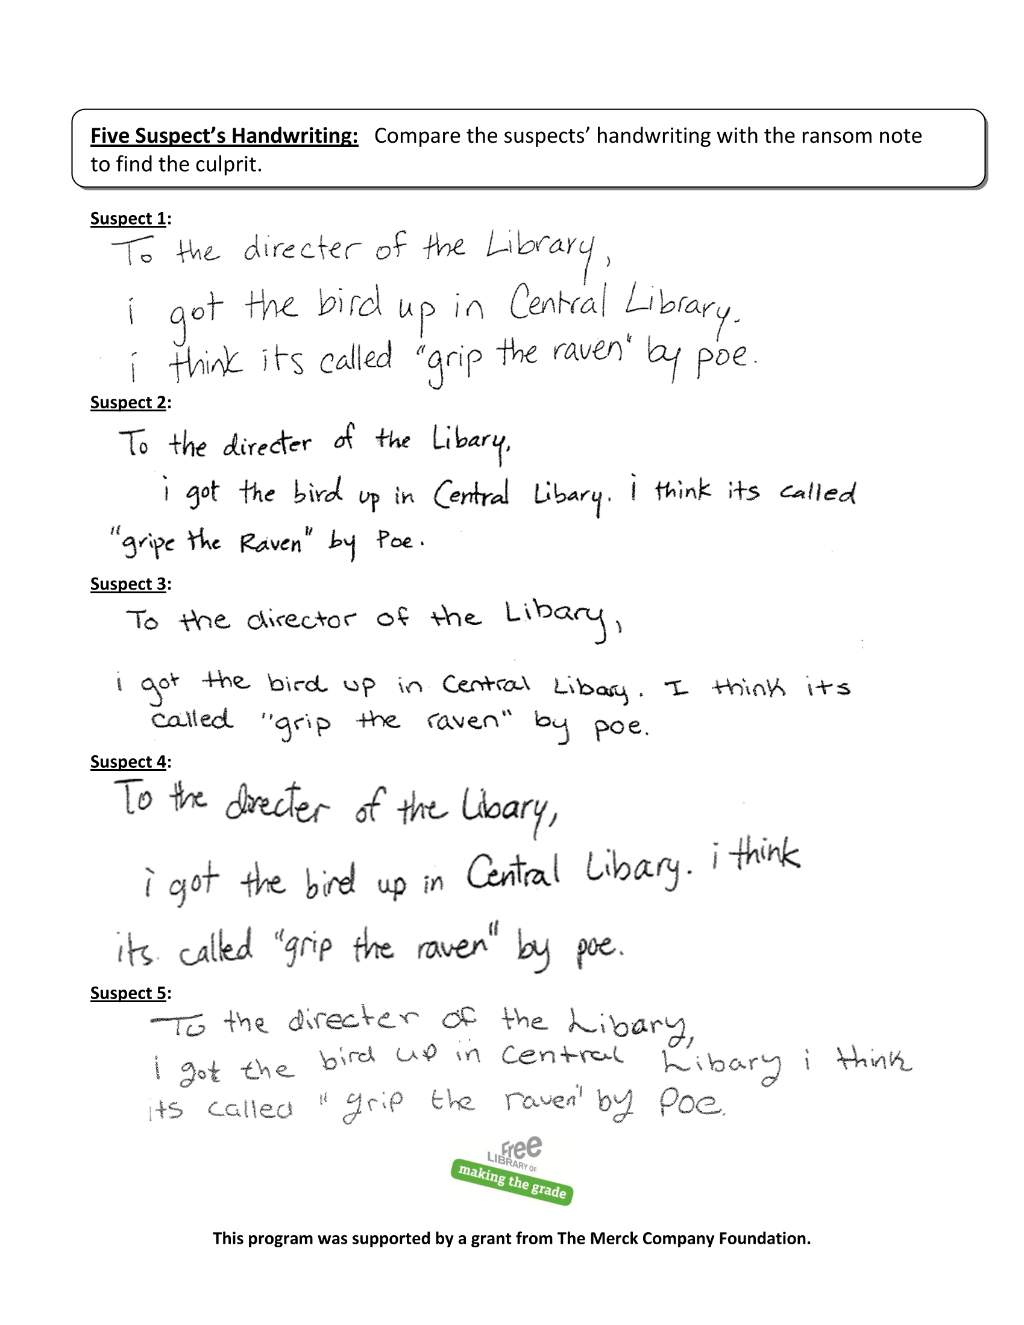 Five Suspect's Handwriting: Compare the suspects' handwriting with the ransom note
to find the culprit.
Suspect 1:
To the directer of the Library,
i got the bird up in Central Library.
i think its called "grip the raven" by poe.
Suspect 2:
To the directer of the Libary,
i got the bird up in Central Libary. i think its called
"gripe the Raven" by Poe.
Suspect 3:
To the director of the Libary,
i got the bird up in Central Libary. I think its
called "grip the raven" by poe.
Suspect 4:
To the directer of the Libary,
i got the bird up in Central Libary. i think
its called "grip the raven" by poe.
Suspect 5:
To the directer of the Libary,
i got the bird up in central Libary i think
its called "grip the raven" by Poe.
Free
LIBRARY OF
making the grade
This program was supported by a grant from The Merck Company Foundation.